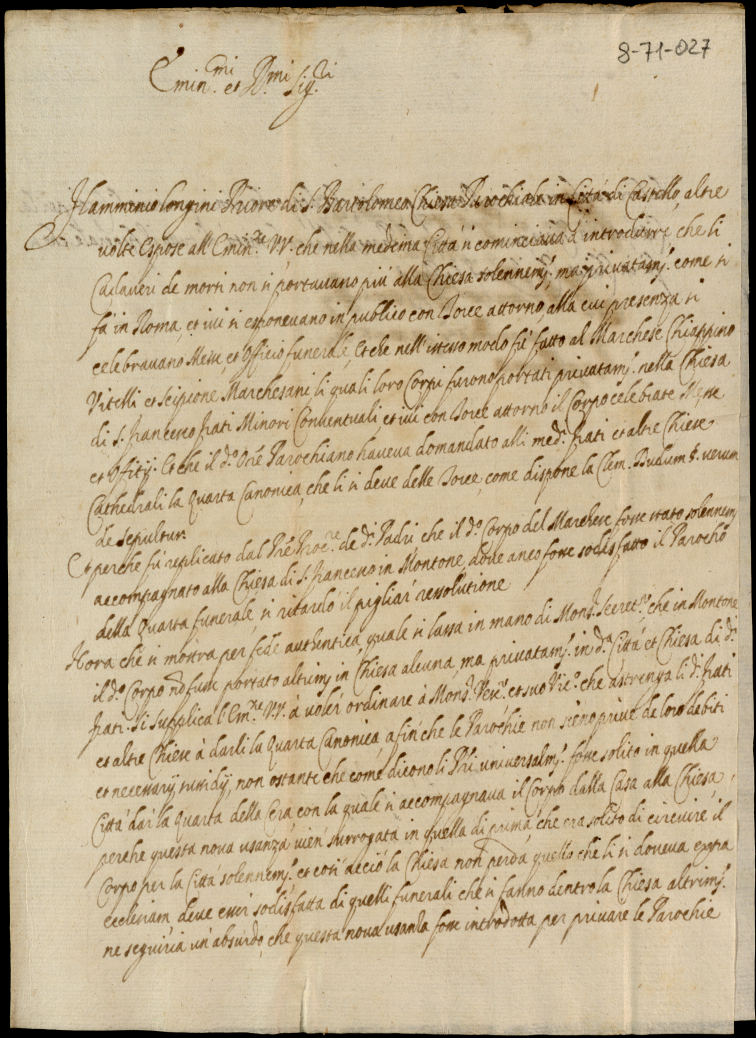 8-71-027
Emin.mi et R.mi Sig.ri
Flamminio Longini Priore di S. Bartolomeo Chiesa Parochiale in Città di Castello, altre
volte espose all'Emin.ze VV. che nella medema Città si cominciava à introdurre che li
Cadaveri de morti non si portavano più alla Chiesa solennem.te, ma privatam.te come si
fà in Roma, et ivi si esponevano in publico con Torce attorno, alla cui presenza si
celebravano Messe et Officio funerale, Et che nell'istesso modo fù fatto al Marchese Chiappino
Vitelli et Scipione Marchesani li quali loro Corpi furono portati privatam.te nella Chiesa
di S. Francesco frati Minori Conventuali et ivi con Torce attorno il Corpo celebrate Messe
et Offitij. Et che il d.o Ore Parochiano haveva domandato alli med.i frati et altre Chiese
Cathedrali la Quarta Canonica, che li si deve delle Torce, come dispone la Clem. Dudum §. verum
de sepultur.
Et perche fù replicato dal Pre Proc.re de d.i Padri che il d.o Corpo del Marchese fosse stato solennem.te
accompagnato alla Chiesa di S. Francesco in Montone, dove anco fosse sodisfatto il Parocho
della Quarta funerale, si ritardò il pigliar resolutione
Hora che si mostra per fede authentica, quale si lassa in mano di Mons.r Secret.o, che in Montone
il d.o Corpo nō fusse portato altrim.te in Chiesa alcuna, ma privatam.te in d.a Città et Chiesa di d.i
frati. Si supplica l'Em.ze VV. à voler ordinare à Mons.r Vesc.o et suo Vic.o che astrenga li d.i frati
et altre Chiese à darli la Quarta Canonica, à fin che le Parochie non sieno prive de loro debiti
et necessarij sussidij, non ostante che come dicono li Pri universalm.te fosse solito in quella
Città dar la Quarta della Cera con la quale si accompagnava il Corpo dalla Casa alla Chiesa,
perche questa nova usanza vien surrogata in quella di prima, che era solito di circuire il
Corpo per la Città solennem.te et così acciò la Chiesa non perda quello che li si doveva extra
ecclesiam deve esser sodisfatta di quelli funerali che si fanno dentro la Chiesa altrim.te
ne seguiria un'absurdo, che questa nova usanza fosse introdotta per privare le Parochie